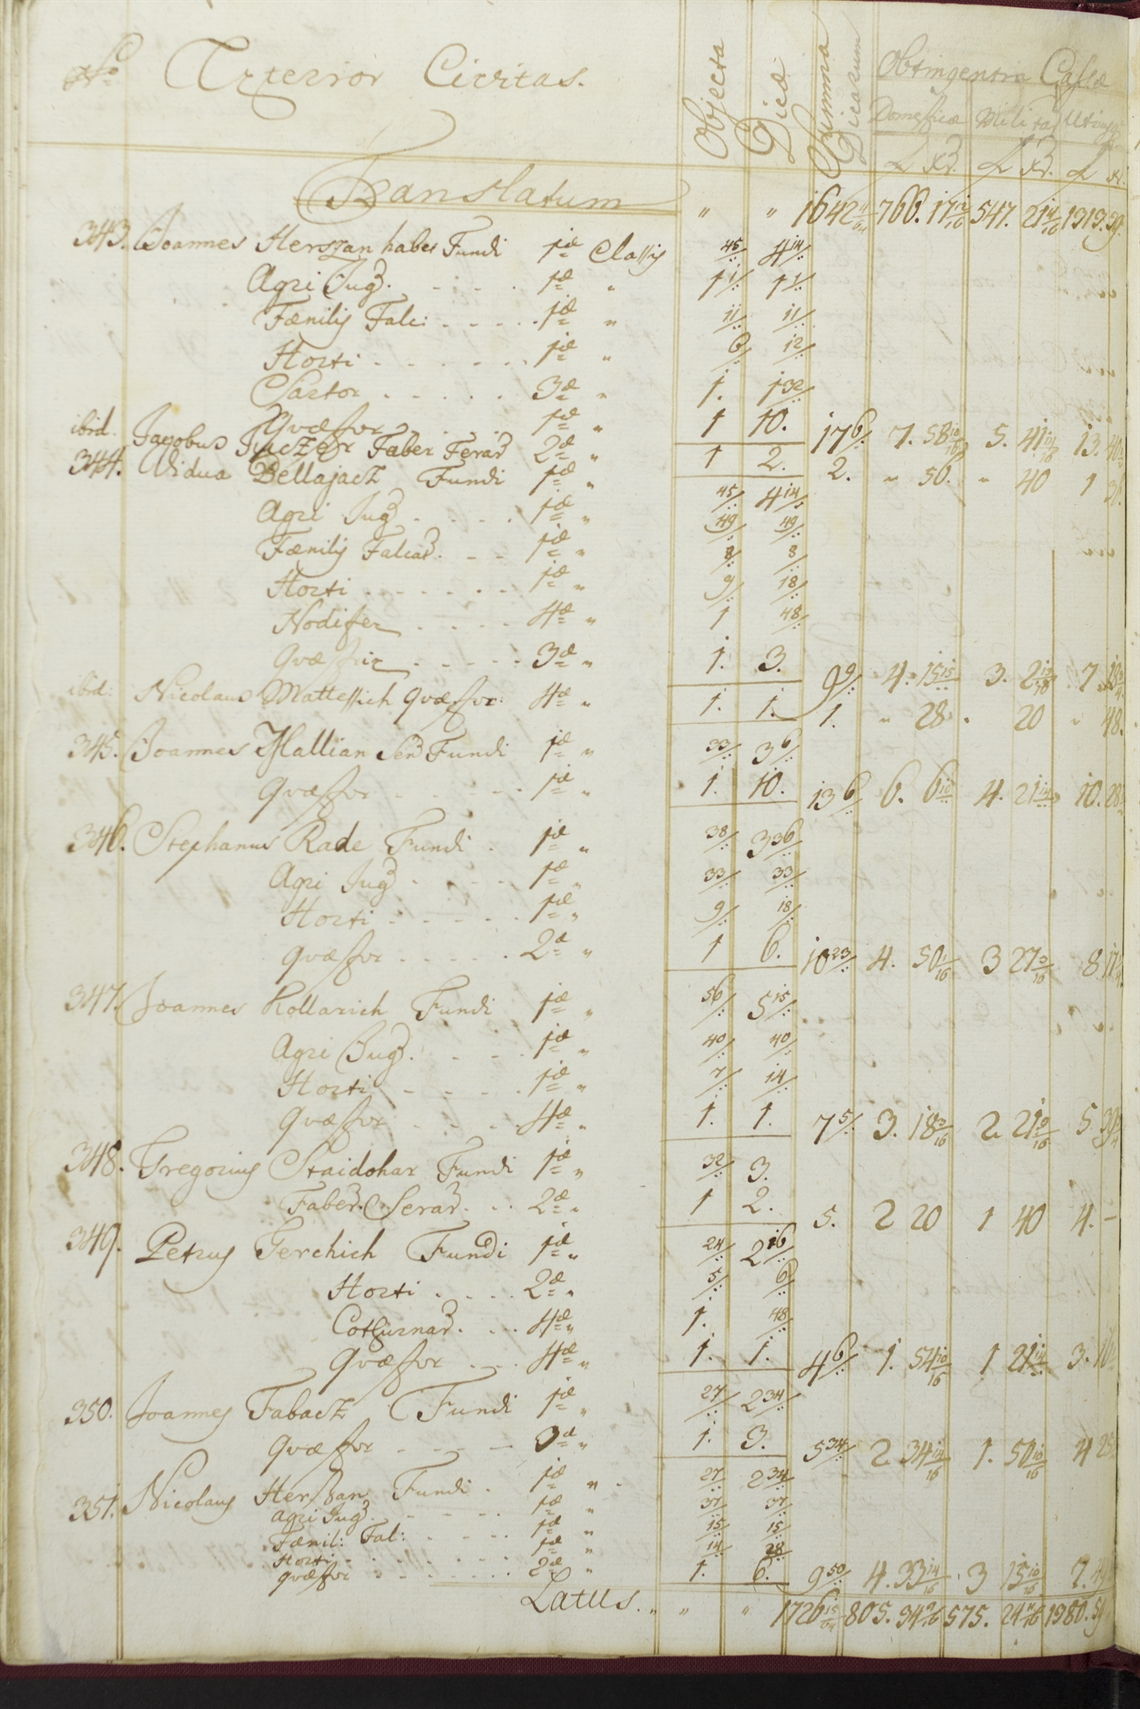 No Exterior Civitas. Objecta Dicæ Summa Dicarum Obtingentia Cassæ
Domesticæ Milita Utriusq
f xr. f xr. f xr.
Translatum " " 1642 766. 17 547. 21 1313. 39.
343. Joannes Herszan habet Fundi 1æ Classis 45 4 14
Agri Jug. 1æ " 11 11
Fænilis Falc: 1æ " 11 11
Horti 1æ " 6 12
Sartor 3æ " 1. 1 32
Quæstor 1æ " 1 10. 17 6 7. 58 5. 41 13. 40
ibid. Jacobus Faber Ferar 2æ " 1 2. 2. " 50. " 40 1 30
344. Vidua Bellajacz Fundi 1æ " 45 4 14
Agri Jug 1æ " 49 49
Fænilis Falcat. 1æ " 8 8
Horti 1æ " 9 18
Nodifex 4æ " 1 48
Quæstus 3æ " 1. 3. 9 9 4. 15 3. 2 7.
ibid: Nicolaus Mattessich Quæstor. 4æ " 1. 1. 1. " 28 " 20 " 48.
345. Joannes Hallian Sen Fundi 1æ " 33 3 6
Quæstor 1æ " 1. 10. 13 6 6. 6 4. 21 10. 28
346. Stephanus Rade Fundi 1æ " 38 3 36
Agri Jug 1æ " 33 33
Horti 1æ " 9 18
Quæstor 2æ " 1 6. 10 23 4. 50 3 27 8
347. Joannes Kollarich Fundi 1æ " 56 5 15
Agri Jug. 1æ " 40 40
Horti 1æ " 7 14
Quæstor 4æ " 1. 1. 7 5 3. 18 2. 21 5
348. Gregorius Staidohar Fundi 1æ " 32 3.
Faber Serar. 2æ " 1 2. 5. 2 20 1 40 4. –
349. Petrus Gerchich Fundi 1æ " 24 2 16
Horti 2æ " 5 6
Cothurnar. 4æ " 1. 48
Quæstor 4æ " 1. 1. 4 6 1. 54 1 21 3.
350. Joannes Fabacz Fundi 1æ " 27 2 34
Quæstor 3æ " 1. 3. 5 34 2 34 1. 50 4
351. Nicolaus Herszan Fundi 1æ " 27 2 34
Agri Jug 1æ " 37 37
Fænil: Fal: 1æ " 15 15
Horti 1æ " 14 28
Quæstor 2æ " 1. 6. 9 50 4. 33 3 15 7.
Latus. " " " 1726 805. 34 575. 24 1380.